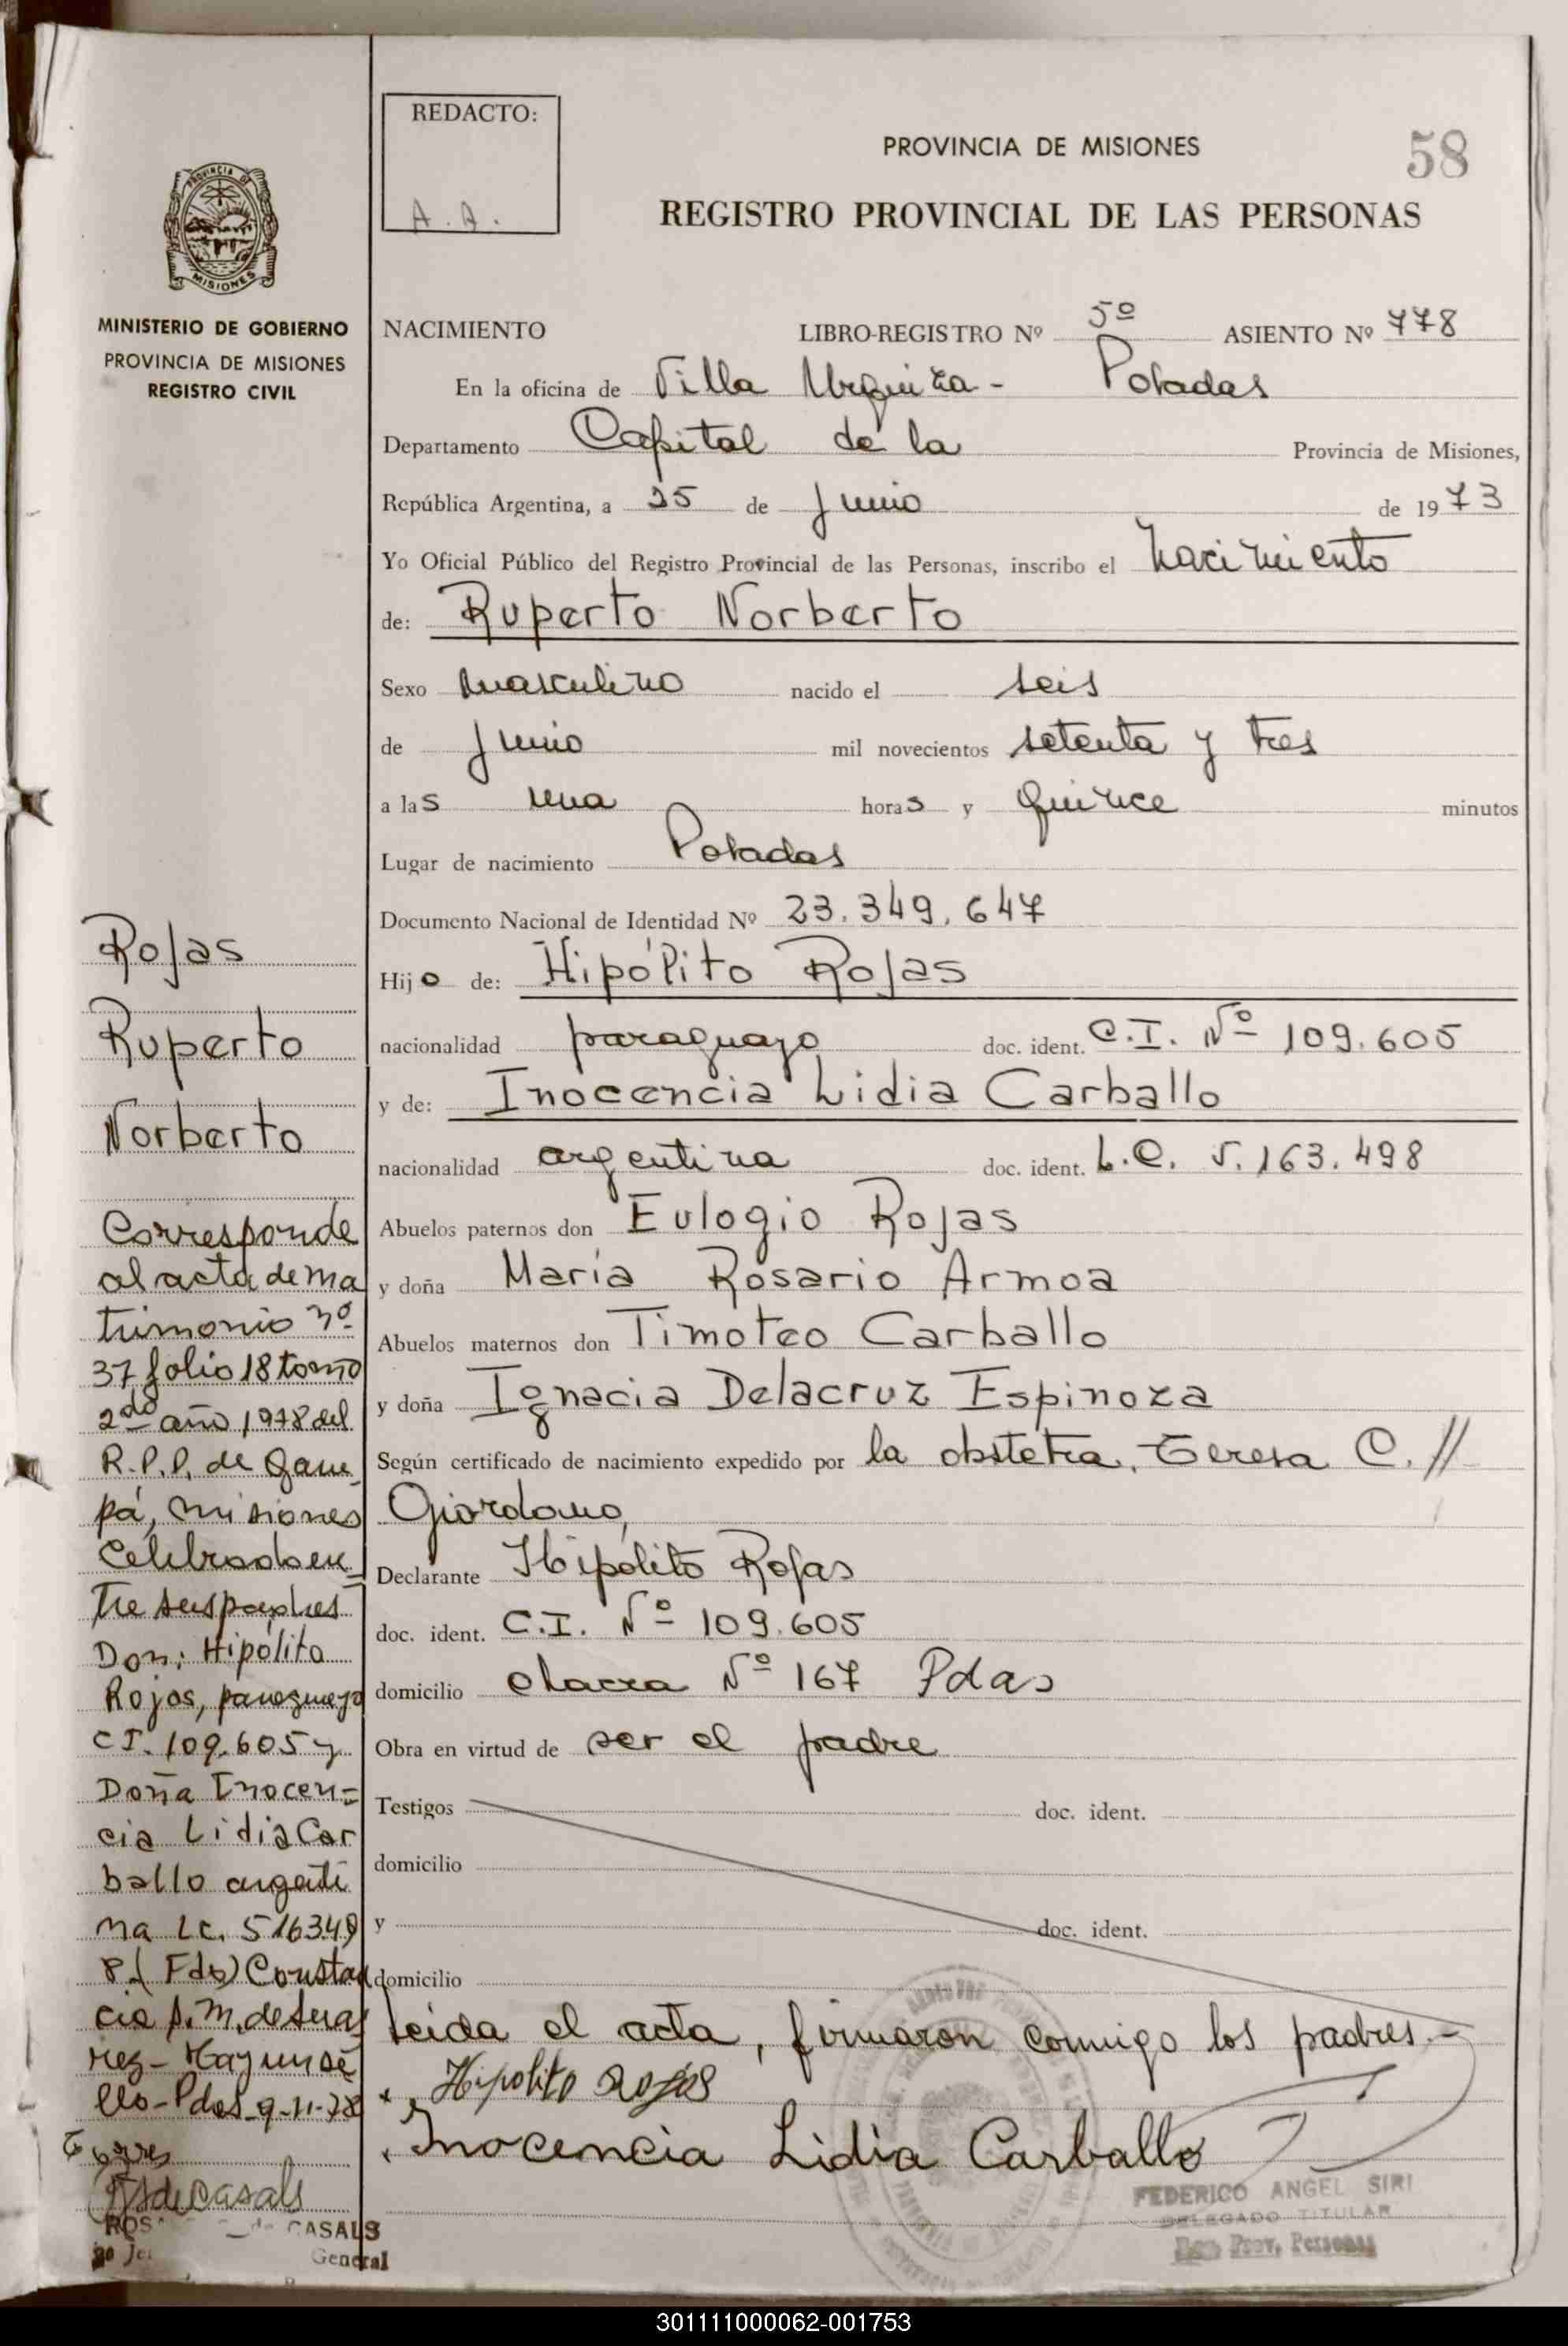 REDACTO:
A. A.
PROVINCIA DE MISIONES
58
REGISTRO PROVINCIAL DE LAS PERSONAS
PROVINCIA DE
MISIONES
MINISTERIO DE GOBIERNO
PROVINCIA DE MISIONES
REGISTRO CIVIL
NACIMIENTO LIBRO-REGISTRO Nº 5º ASIENTO Nº 778
En la oficina de Villa Urquiza - Posadas
Departamento Capital de la Provincia de Misiones,
República Argentina, a 25 de Junio de 1973
Yo Oficial Público del Registro Provincial de las Personas, inscribo el nacimiento
de: Ruperto Norberto
Sexo masculino nacido el seis
de Junio mil novecientos setenta y tres
a las una horas y quince minutos
Lugar de nacimiento Posadas
Documento Nacional de Identidad Nº 23.349.647
Hijo de: Hipólito Rojas
nacionalidad paraguayo doc. ident. C.I. Nº 109.605
y de: Inocencia Lidia Carballo
nacionalidad argentina doc. ident. L.C. 5.163.498
Abuelos paternos don Eulogio Rojas
y doña María Rosario Armoa
Abuelos maternos don Timoteo Carballo
y doña Ignacia Delacruz Espinoza
Según certificado de nacimiento expedido por la obstetra, Teresa C. //
Giordano,
Declarante Hipólito Rojas
doc. ident. C.I. Nº 109.605
domicilio chacra Nº 167 Pdas
Obra en virtud de ser el padre
Testigos doc. ident.
domicilio
y doc. ident.
domicilio
Leida el acta, firmaron conmigo los padres.-
Hipolito Rojas
Inocencia Lidia Carballo
FEDERICO ANGEL SIRI
DELEGADO TITULAR
Reg. Prov. Personas
Rojas
Ruperto
Norberto
Corresponde
al acta de ma
trimonio nº
37 folio 18 tomo
2do año 1978 del
R.P.P. de Garu-
pá, misiones
Celebrado en-
tre sus padres
Don: Hipólito
Rojas, paraguayo
CI. 109.605 y
Doña Inocen-
cia Lidia Car
ballo argenti
na Lc. 516349
8. (Fdo) Constan
cia p. M. de Sua
rez - Hay un se
llo - Pdas 9-11-78
Torres
RSdeCasals
ROS de CASALS
General
301111000062-001753